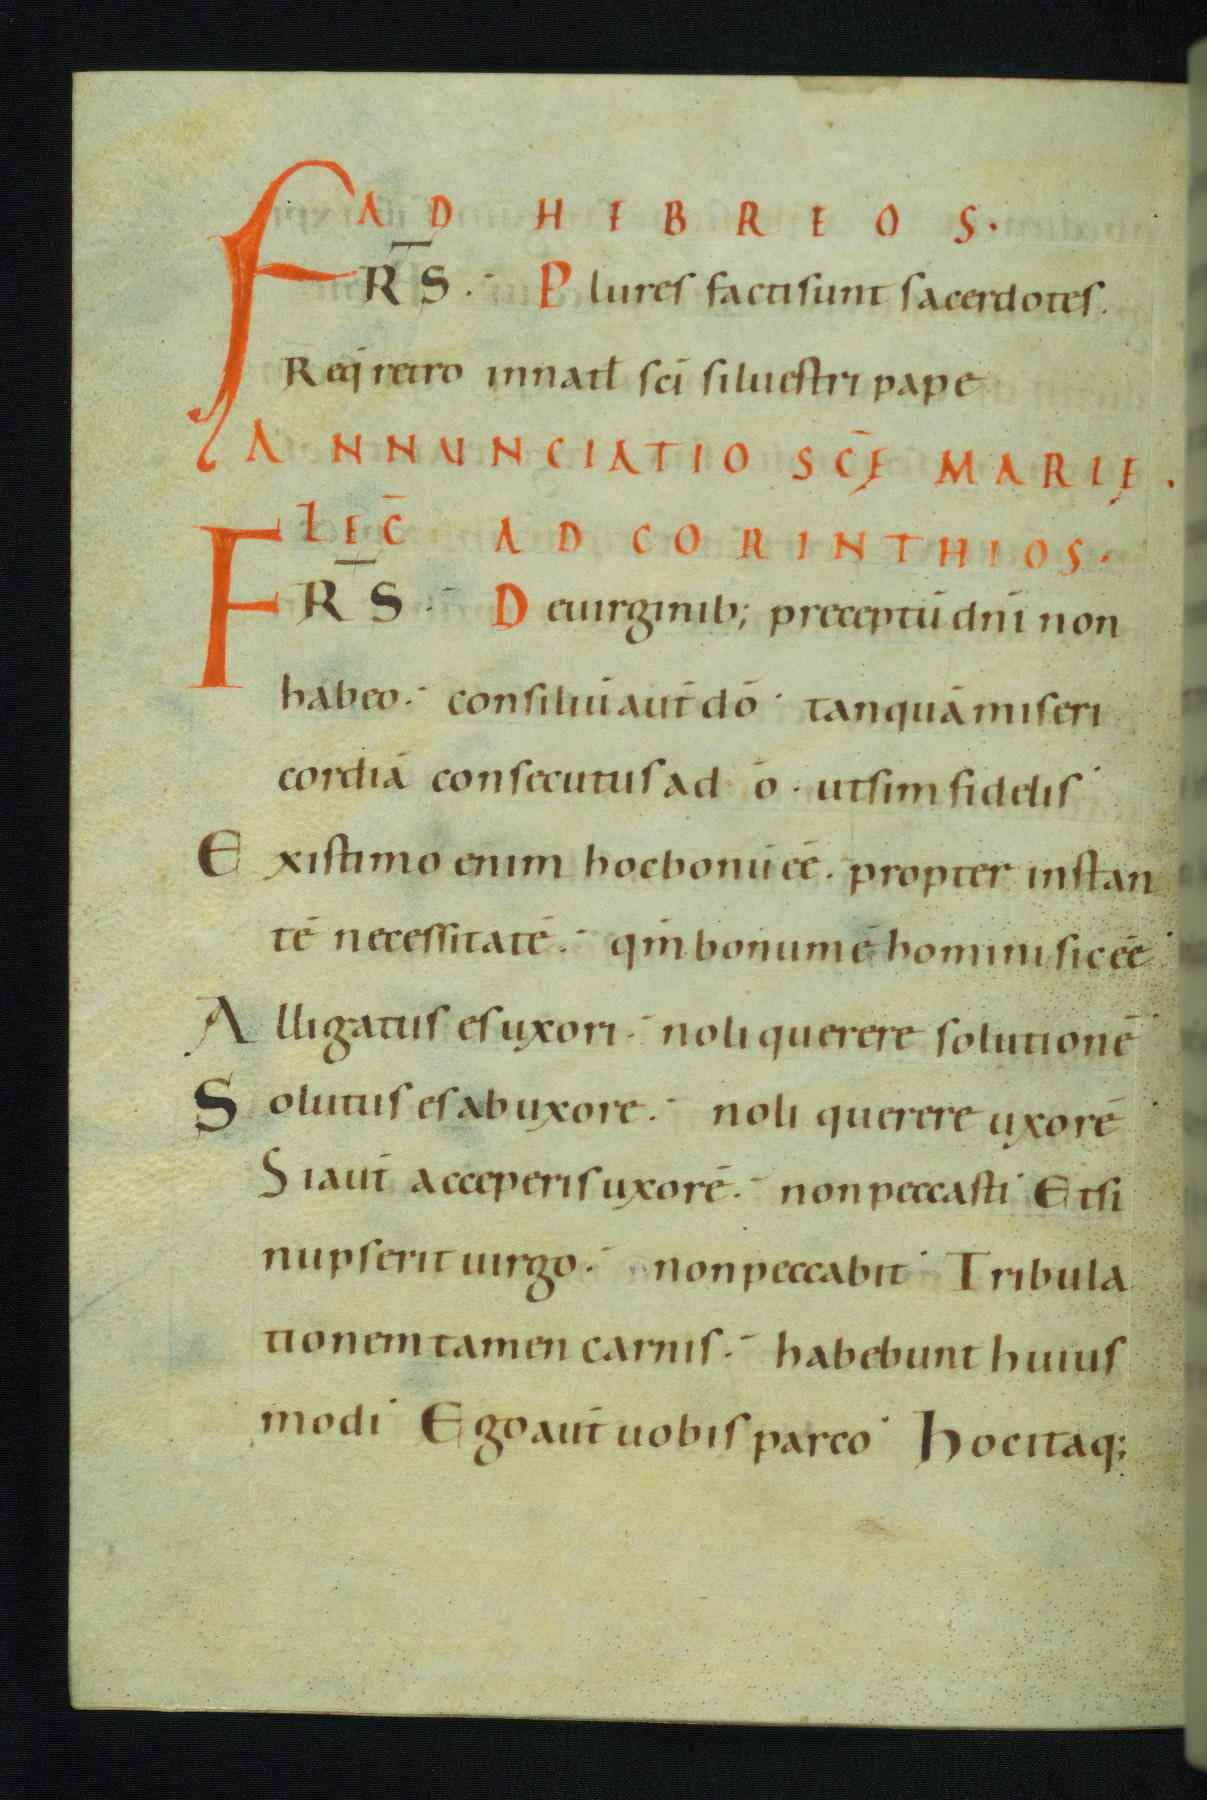 AD HEBREOS.
FR̅S. Plures facti sunt sacerdotes.
Req̇ retro in natł sc̄i siluestri pape
ANNUNCIATIO SC̄Ę MARIĘ.
LEC̄ AD CORINTHIOS.
FR̅S. De uirginib; preceptū dn̄i non
habeo. consiliū aut̄ dō. tanquā miseri
cordiā consecutus a d̄o. ut sim fidelis.
Existimo enim hoc bonū eē. propter instan
tē necessitatē. qm̄ bonum ē homini sic eē.
Alligatus es uxori. noli querere solutionē.
Solutus es ab uxore. noli querere uxorē.
Si aut̄ acceperis uxorē. non peccasti. Et si
nupserit uirgo. non peccabit. Tribula
tionem tamen carnis. habebunt huius
modi. Ego aut̄ uobis parco. Hoc itaq;